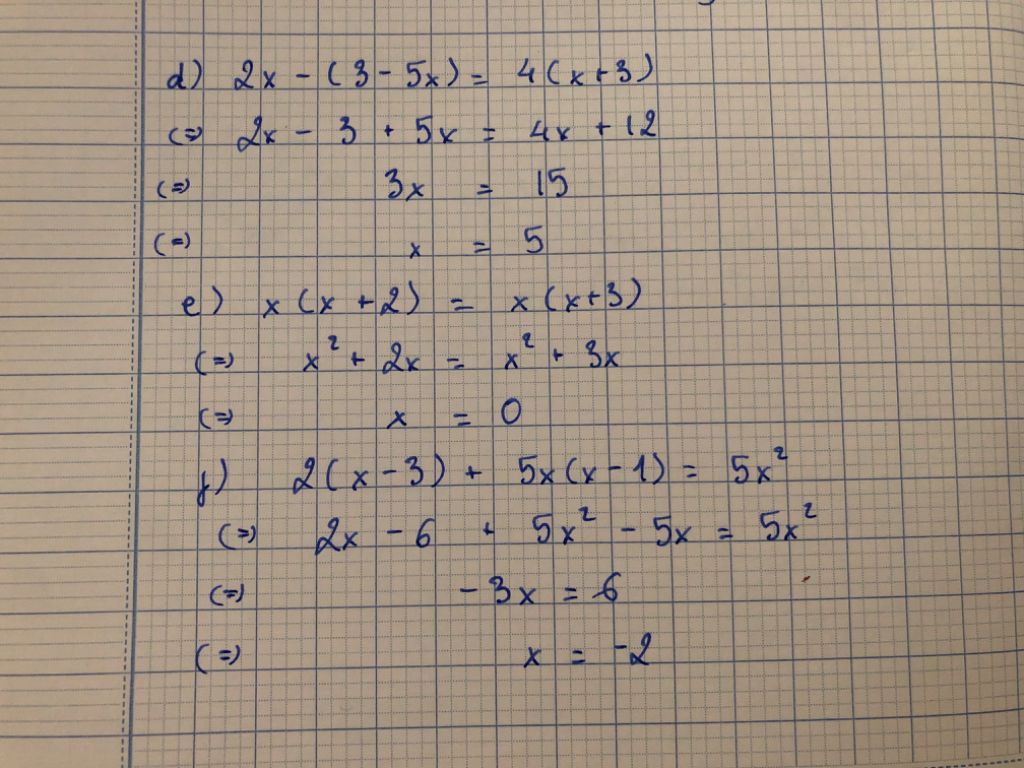 d) 2x - (3 - 5x) = 4(x+3)
(=) 2x - 3 + 5x = 4x + 12
(=) 3x = 15
(=) x = 5
e) x(x + 2) = x(x+3)
(=) x² + 2x = x² + 3x
(=) x = 0
f) 2(x - 3) + 5x(x - 1) = 5x²
(=) 2x - 6 + 5x² - 5x = 5x²
(=) -3x = 6
(=) x = -2